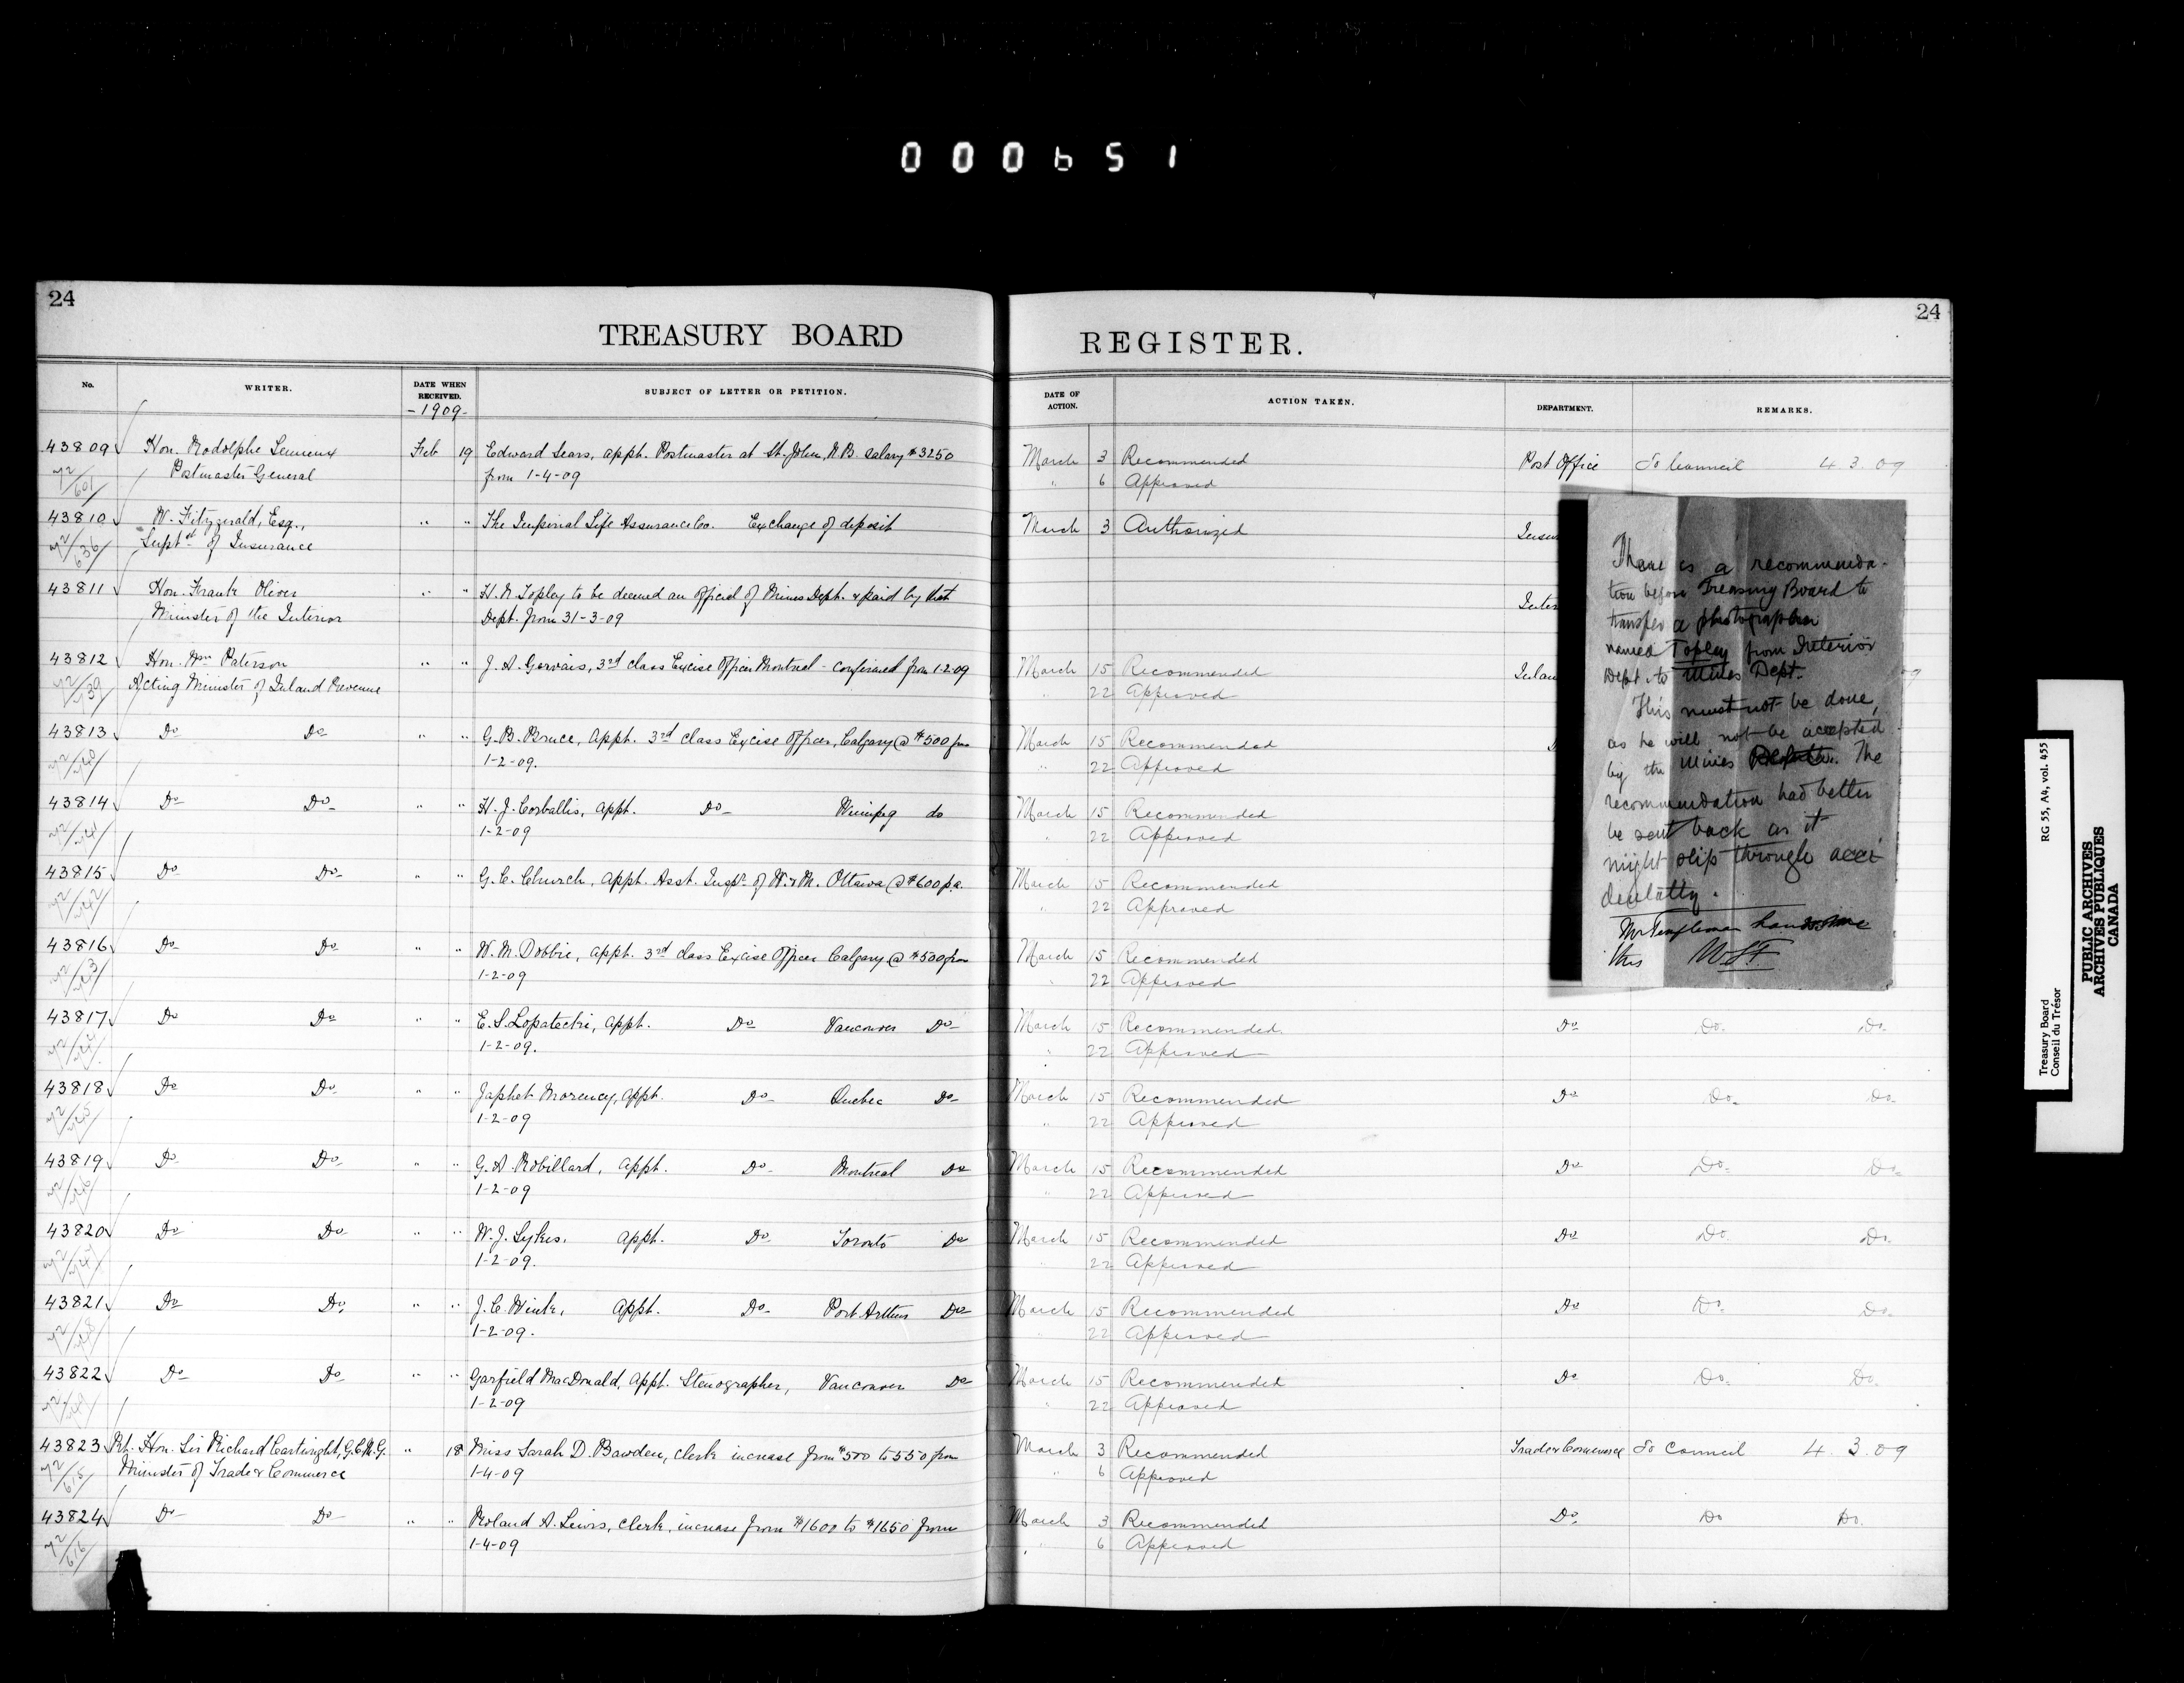 000651
24
TREASURY BOARD
REGISTER.
24
No.
WRITER.
DATE WHEN RECEIVED.
-1909-
SUBJECT OF LETTER OR PETITION.
DATE OF ACTION.
ACTION TAKEN.
DEPARTMENT.
REMARKS.
43809 Hon. Rodolphe Lemieux Feb 19 Edward Sears, appt. Postmaster at St. John, N.B. salary $3250 March 3 Recommended Post Office To Council 4 3.09
72/601 Postmaster General from 1-4-09 " 6 Approved
43810 W. Fitzgerald, Esq., " " The Imperial Life Assurance Co. Exchange of deposit March 3 Authorized
72/636 Supt. of Insurance
43811 Hon. Frank Oliver " " H. N. Topley to be deemed an official of Mines Dept. & paid by that
Minister of the Interior Dept. from 31-3-09
43812 Hon. Wm Paterson " " J. A. Gervais, 3rd class Excise Officer Montreal - confirmed from 1-2-09 March 15 Recommended
Acting Minister of Inland Revenue " 22 Approved 09
43813 Do Do " " G. B. Bruce, Appt. 3rd class Excise Officer, Calgary @ $500 from March 15 Recommended
1-2-09. " 22 Approved
43814 Do Do " " H. J. Corballis, appt. Do Winnipeg do March 15 Recommended
1-2-09 " 22 Approved
43815 Do Do " " G. C. Church, appt. Asst. Inspr of W. & M. Ottawa @ $600 p.a. March 15 Recommended
" 22 Approved
43816 Do Do " " W. M. Dobbie, appt. 3rd class Excise Officer Calgary @ $500 from March 15 Recommended
1-2-09 " 22 Approved
43817 Do Do " " E. S. Lopatecki, appt. Do Vancouver Do March 15 Recommended Do Do. Do
1-2-09. " 22 Approved
43818 Do Do " " Japhet Morency, appt. Do Quebec Do March 15 Recommended Do Do. Do
1-2-09 " 22 Approved
43819 Do Do " " G. A. Robillard, appt. Do Montreal Do March 15 Recommended Do Do. Do
1-2-09 " 22 Approved
43820 Do Do " " W. J. Sykes, appt. Do Toronto Do March 15 Recommended Do Do Do
1-2-09. " 22 Approved
43821 Do Do " " J. C. Wink, appt. Do Port Arthur Do March 15 Recommended Do Do Do
1-2-09. " 22 Approved
43822 Do Do " " Garfield MacDonald, appt. Stenographer, Vancouver Do March 15 Recommended Do Do. Do
1-2-09 " 22 Approved
43823 Rt. Hon. Sir Richard Cartwright, G.C.M.G. " 18 Miss Sarah D. Bawden, clerk increase from $500 to 550 from March 3 Recommended Trade & Commerce To Council 4. 3.09
72/615 Minister of Trade & Commerce 1-4-09 " 6 Approved
43824 Do Do " " Roland A. Lewis, clerk, increase from $1600 to $1650 from March 3 Recommended Do Do Do
72/616 1-4-09 " 6 Approved
There is a recommenda-
tion before Treasury Board to
transfer a photographer
named Topley from Interior
Dept. to Mines Dept.
This must not be done,
as he will not be accepted
by the Mines. The
recommendation had better
be sent back as it
might slip through acci-
dentally.
Mr Templeman
this
Treasury Board
Conseil du Trésor
RG 55, A4, vol. 455
PUBLIC ARCHIVES
ARCHIVES PUBLIQUES
CANADA